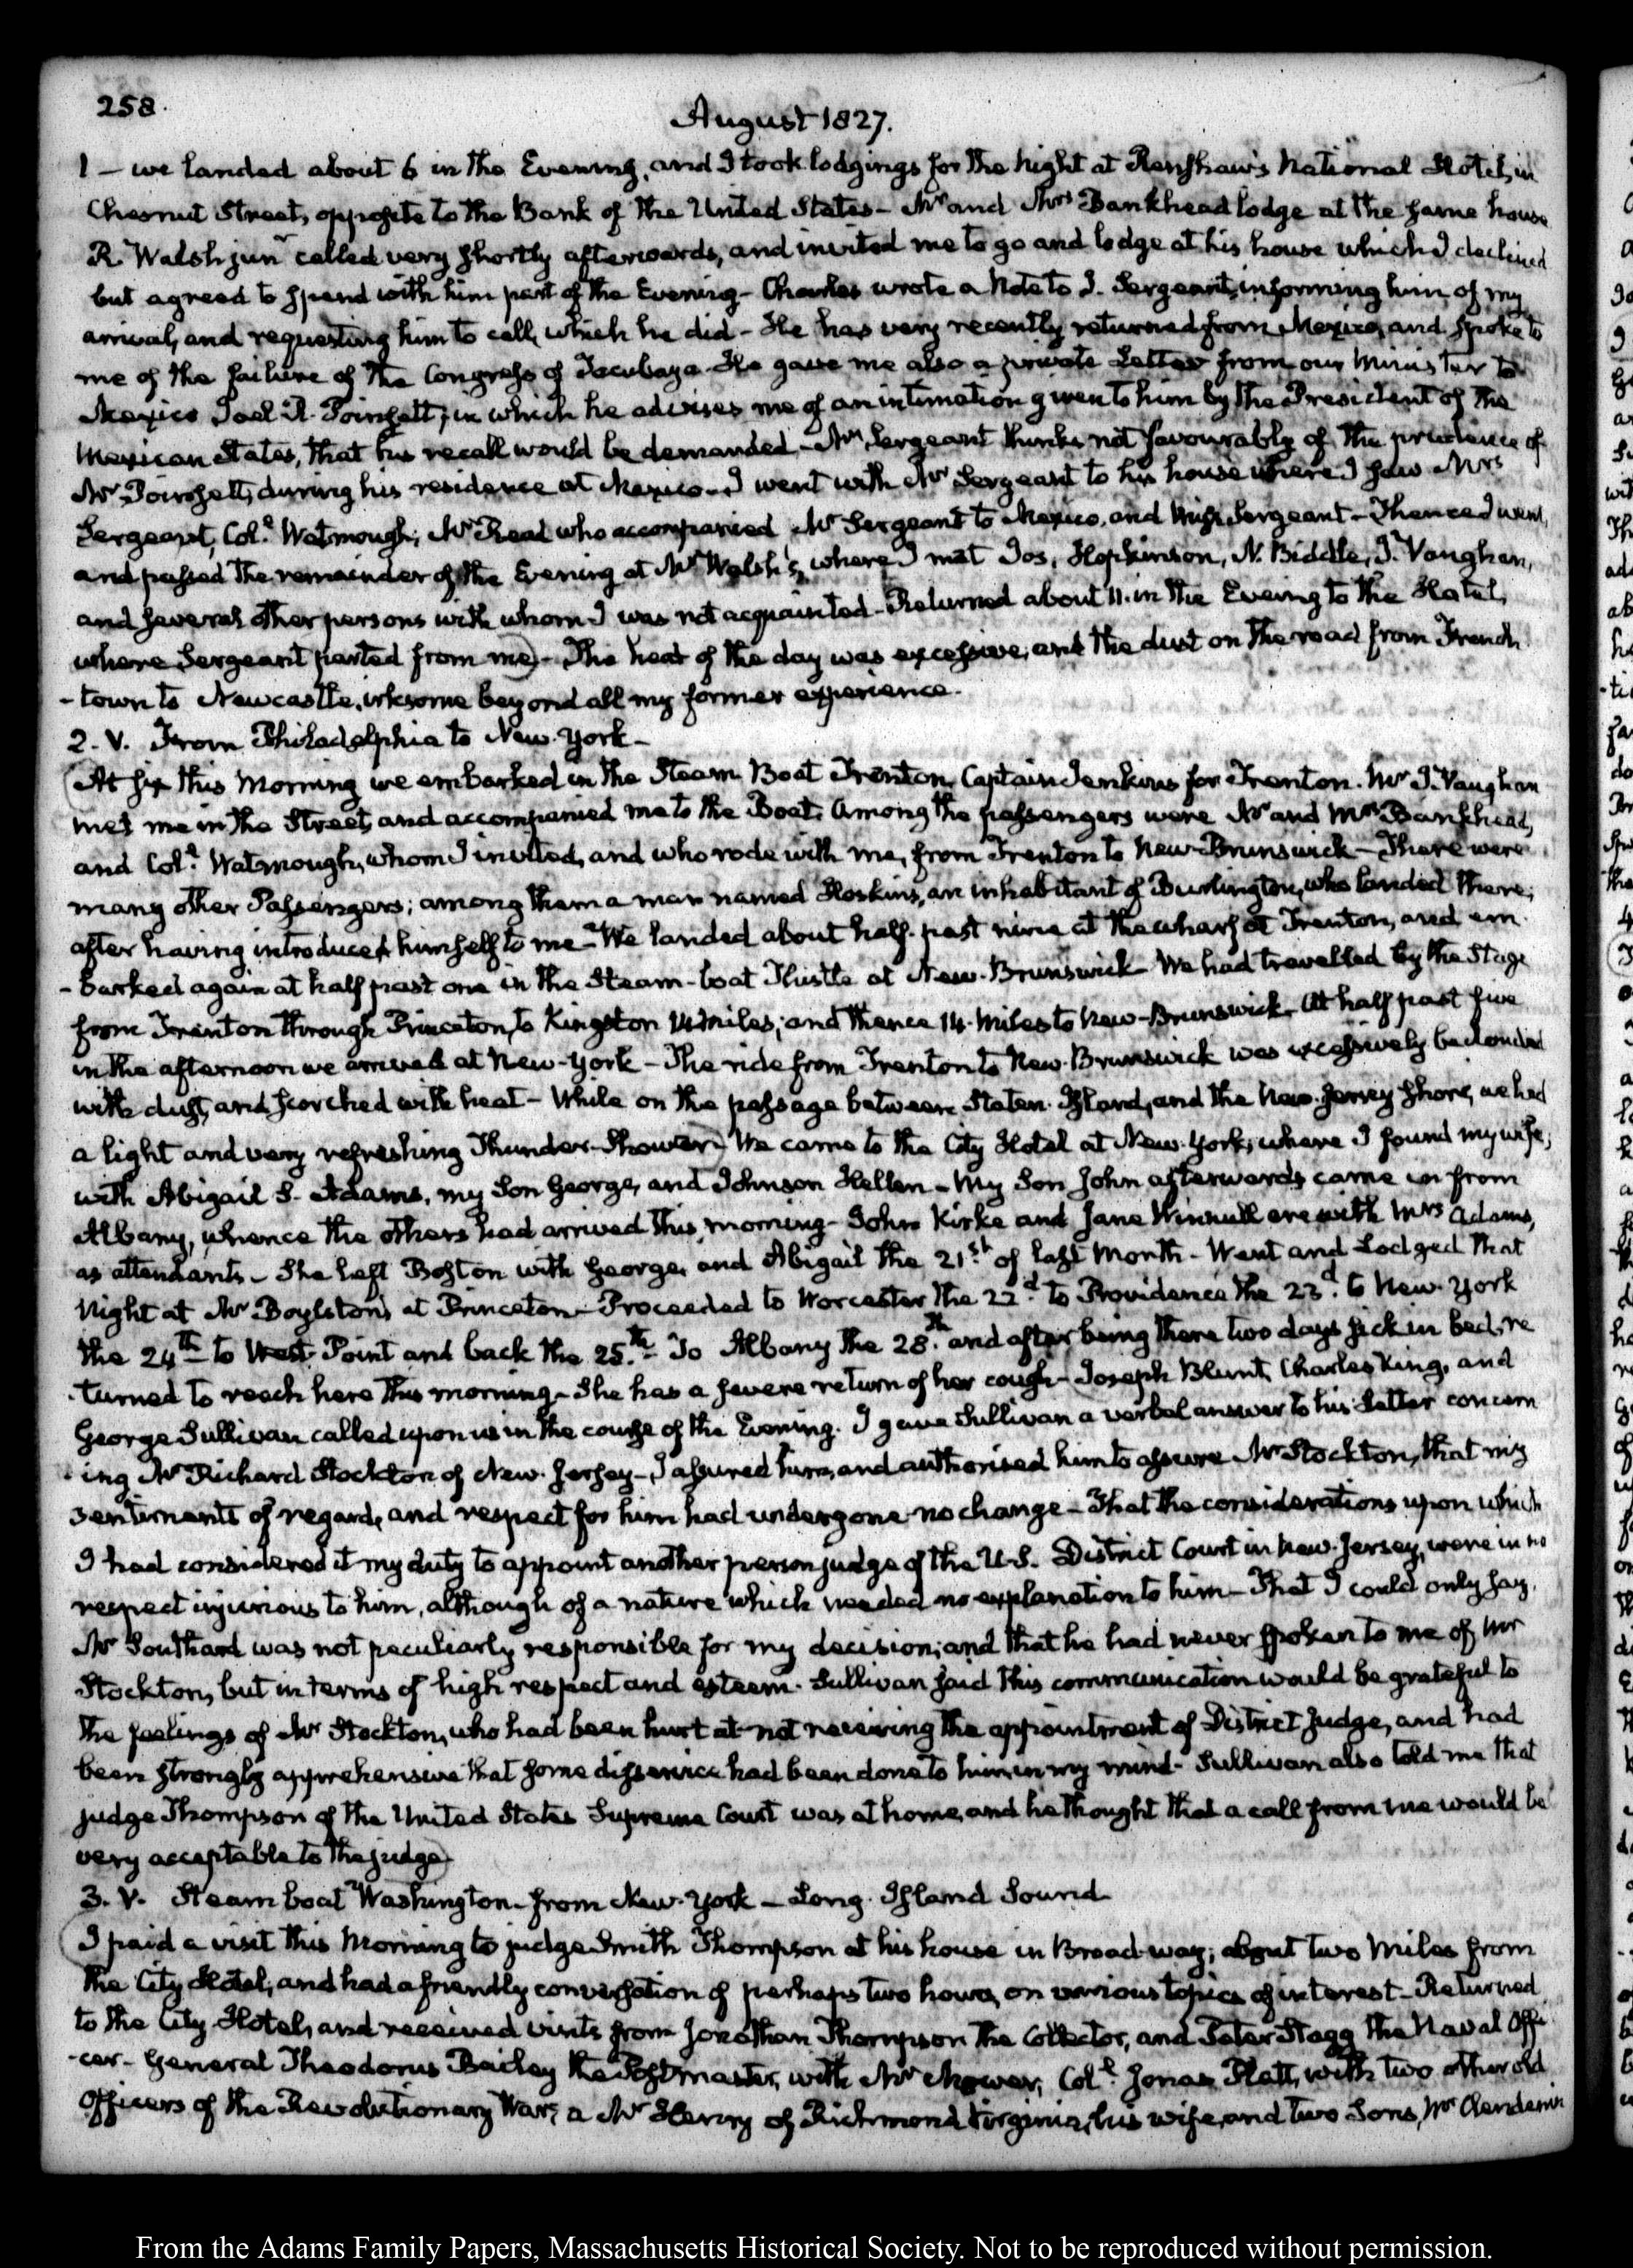 258.
August 1827.
1 – we landed about 6 in the Evening, and I took lodgings for the night at Renshaw's National Hotel, in
Chesnut Street, opposite to the Bank of the United States – Mr and Mrs Bankhead lodge at the same house
R. Walsh junr called very shortly afterwards, and invited me to go and lodge at his house which I declined
but agreed to spend with him part of the Evening – Charles wrote a Note to J. Sergeant, informing him of my
arrival, and requesting him to call, which he did – He has very recently returned from Mexico, and spoke to
me of the failure of the Congress of Tacubaya. He gave me also a private Letter from our Minister to
Mexico Joel R. Poinsett; in which he advises me of an intimation given to him by the President of the
Mexican States, that his recall would be demanded – Mr Sergeant thinks not favourably of the prudence of
Mr Poinsett, during his residence at Mexico – I went with Mr Sergeant to his house where I saw Mrs
Sergeant, Col. Watmough; Mr Read who accompanied Mr Sergeant to Mexico, and Miss Sergeant – Thence I went,
and passed the remainder of the Evening at Mr Walsh's, where I met Jos. Hopkinson, N. Biddle, J. Vaughan,
and several other persons with whom I was not acquainted – Returned about 11. in the Eveing to the Hotel,
where Sergeant parted from me) – The heat of the day was excessive, and the dust on the road from French
-town to Newcastle, irksome beyond all my former experience.
2. V. From Philadelphia to New-York –
(At six this Morning we embarked in the Steam Boat Trenton, Captain Jenkins for Trenton. Mr J. Vaughan
met me in the Street, and accompanied me to the Boat. Among the passengers were Mr and Mrs Bankhead,
and Col. Watmough, whom I invited, and who rode with me, from Trenton to New-Brunswick – There were
many other Passengers; among them a man named Hoskins, an inhabitant of Burlington, who landed there;
after having introduced himself to me – We landed about half past nine at the wharf at Trenton, and em
-barked again at half past one in the Steam-boat Thistle at New-Brunswick – We had travelled by the Stage
from Trenton through Princeton, to Kingston 14 miles; and thence 14 miles to New-Brunswick. At half past five
in the afternoon we arrived at New-York – The ride from Trenton to New-Brunswick was excessively beclouded
with dust, and scorched with heat – While on the passage between Staten-Island, and the New-Jersey shore, we had
a light and very refreshing Thunder-Shower) We came to the City Hotel at New-York, where I found my wife,
with Abigail S. Adams, my Son George, and Johnson Hellen – My Son John afterwards came in from
Albany, whence the others had arrived this morning – John Kirke and Jane Winnull are with Mrs Adams,
as attendants – She left Boston with George, and Abigail the 21st of last Month – Went and Lodged that
Night at Mr Boylston's at Princeton – Proceeded to Worcester the 22d to Providence the 23d to New-York
the 24th to West Point and back the 25th To Albany the 28th and after being there two days sick in bed, re
-turned to reach here this morning – She has a severe return of her cough – Joseph Blunt, Charles King, and
George Sullivan called upon us in the course of the Evening. I gave Sullivan a verbal answer to his Letter concern
-ing Mr Richard Stockton of New-Jersey – I assured him, and authorised him to assure Mr Stockton, that my
sentiments of regard, and respect for him had undergone no change – That the considerations upon which
I had considered it my duty to appoint another person judge of the U.S. District Court in New-Jersey, were in no
respect injurious to him, although of a nature which needed no explanation to him – That I could only say,
Mr Southard was not peculiarly responsible for my decision; and that he had never spoken to me of Mr
Stockton, but in terms of high respect and esteem. Sullivan said this communication would be grateful to
the feelings of Mr Stockton, who had been hurt at not receiving the appointment of District Judge, and had
been strongly apprehensive that some disservice had been done to him in my mind – Sullivan also told me that
judge Thompson of the United States Supreme Court was at home, and he thought that a call from me would be
very acceptable to the judge)
3. V. Steam boat Washington – from New-York – Long-Island Sound –
(I paid a visit this Morning to judge Smith Thompson at his house in Broad-way; about two Miles from
the City Hotel; and had a friendly conversation of perhaps two hours, on various topics of interest – Returned
to the City Hotel, and received visits from Jonathan Thompson the Collector, and Peter Stagg the Naval Offi
-cer – General Theodorus Bailey the Postmaster, with Mr Mower, Col. Jonas Platt, with two other old
Officers of the Revolutionary War; a Mr Henry of Richmond Virginia, his wife, and two Sons, Mr Clendenin
From the Adams Family Papers, Massachusetts Historical Society. Not to be reproduced without permission.